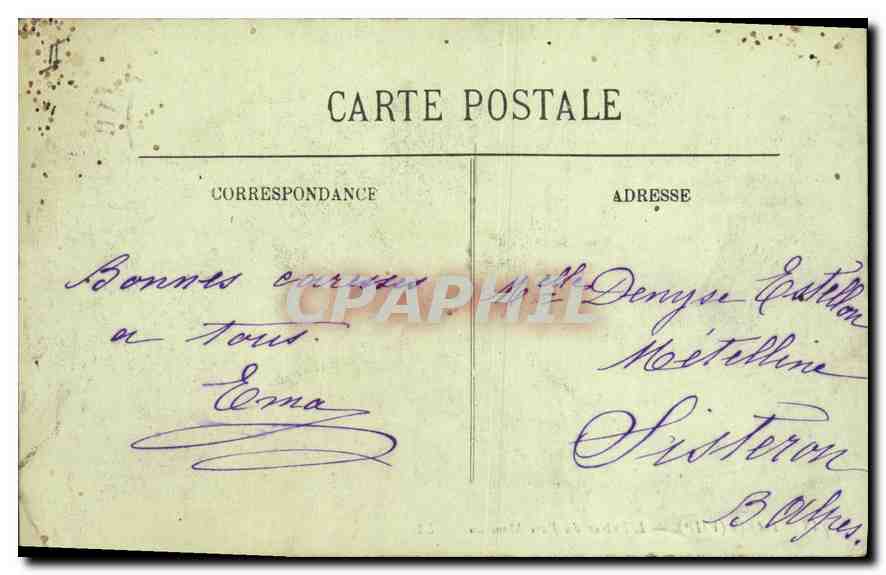 CARTE POSTALE
CORRESPONDANCE
ADRESSE
Bonnes caresses
a tous.
Ema
Melle Denyse Estellon
Mételline
Sisteron
B Alpes.
CPAPHIL